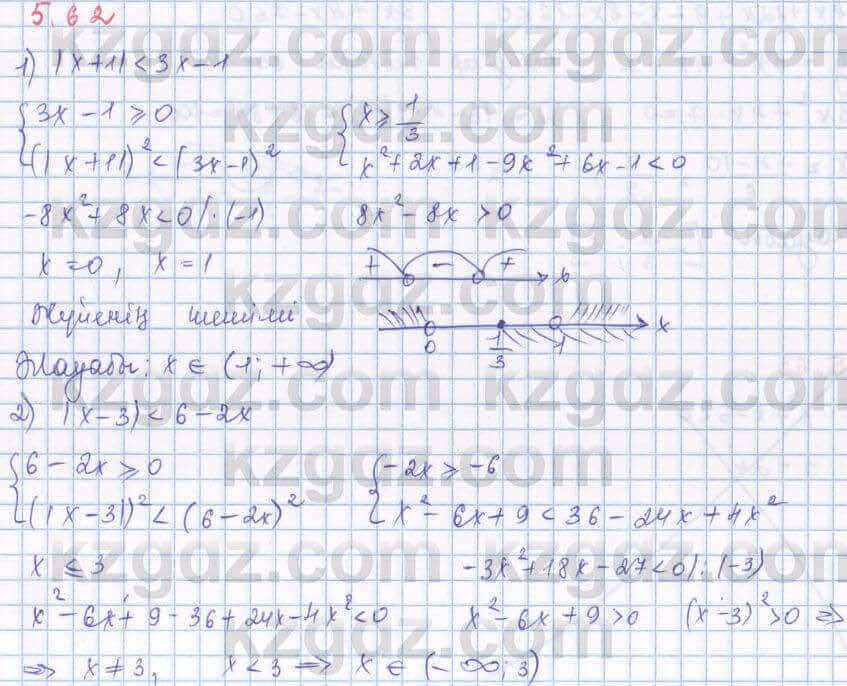 5.62
1) |x+1|<3x-1
{3x-1≥0 {x≥1/3
{(|x+1|)²<(3x-1)² {x²+2x+1-9x²+6x-1<0
-8x²+8x<0|·(-1) 8x²-8x>0
x=0, x=1 + - + x
Жүйенің шешімі 0 1/3 1 x
Жауабы: x∈(1;+∞)
2) |x-3|<6-2x
{6-2x≥0 {-2x≥-6
{(|x-3|)²<(6-2x)² {x²-6x+9<36-24x+4x²
x≤3 -3x²+18x-27<0|:(-3)
x²-6x+9-36+24x-4x²<0 x²-6x+9>0 (x-3)²>0 ⇒
⇒ x≠3, x<3 ⇒ x∈(-∞;3)
kzgdz.com